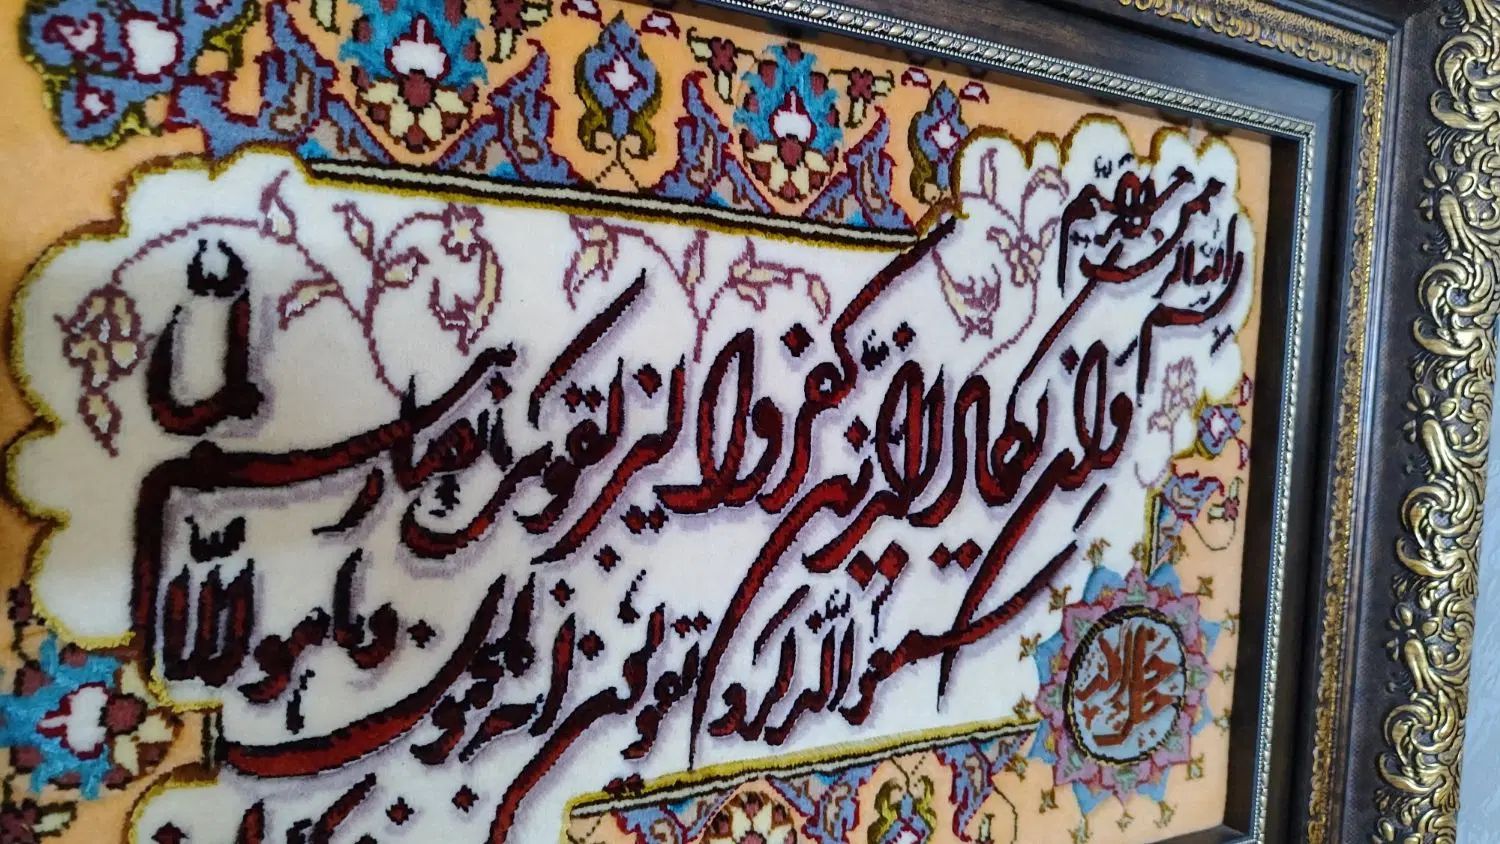 بسم الله الرحمن الرحیم
وان یکاد الذین کفروا لیزلقونک بابصارهم لما
سمعوا الذکر و یقولون انه لمجنون و ما هو الا